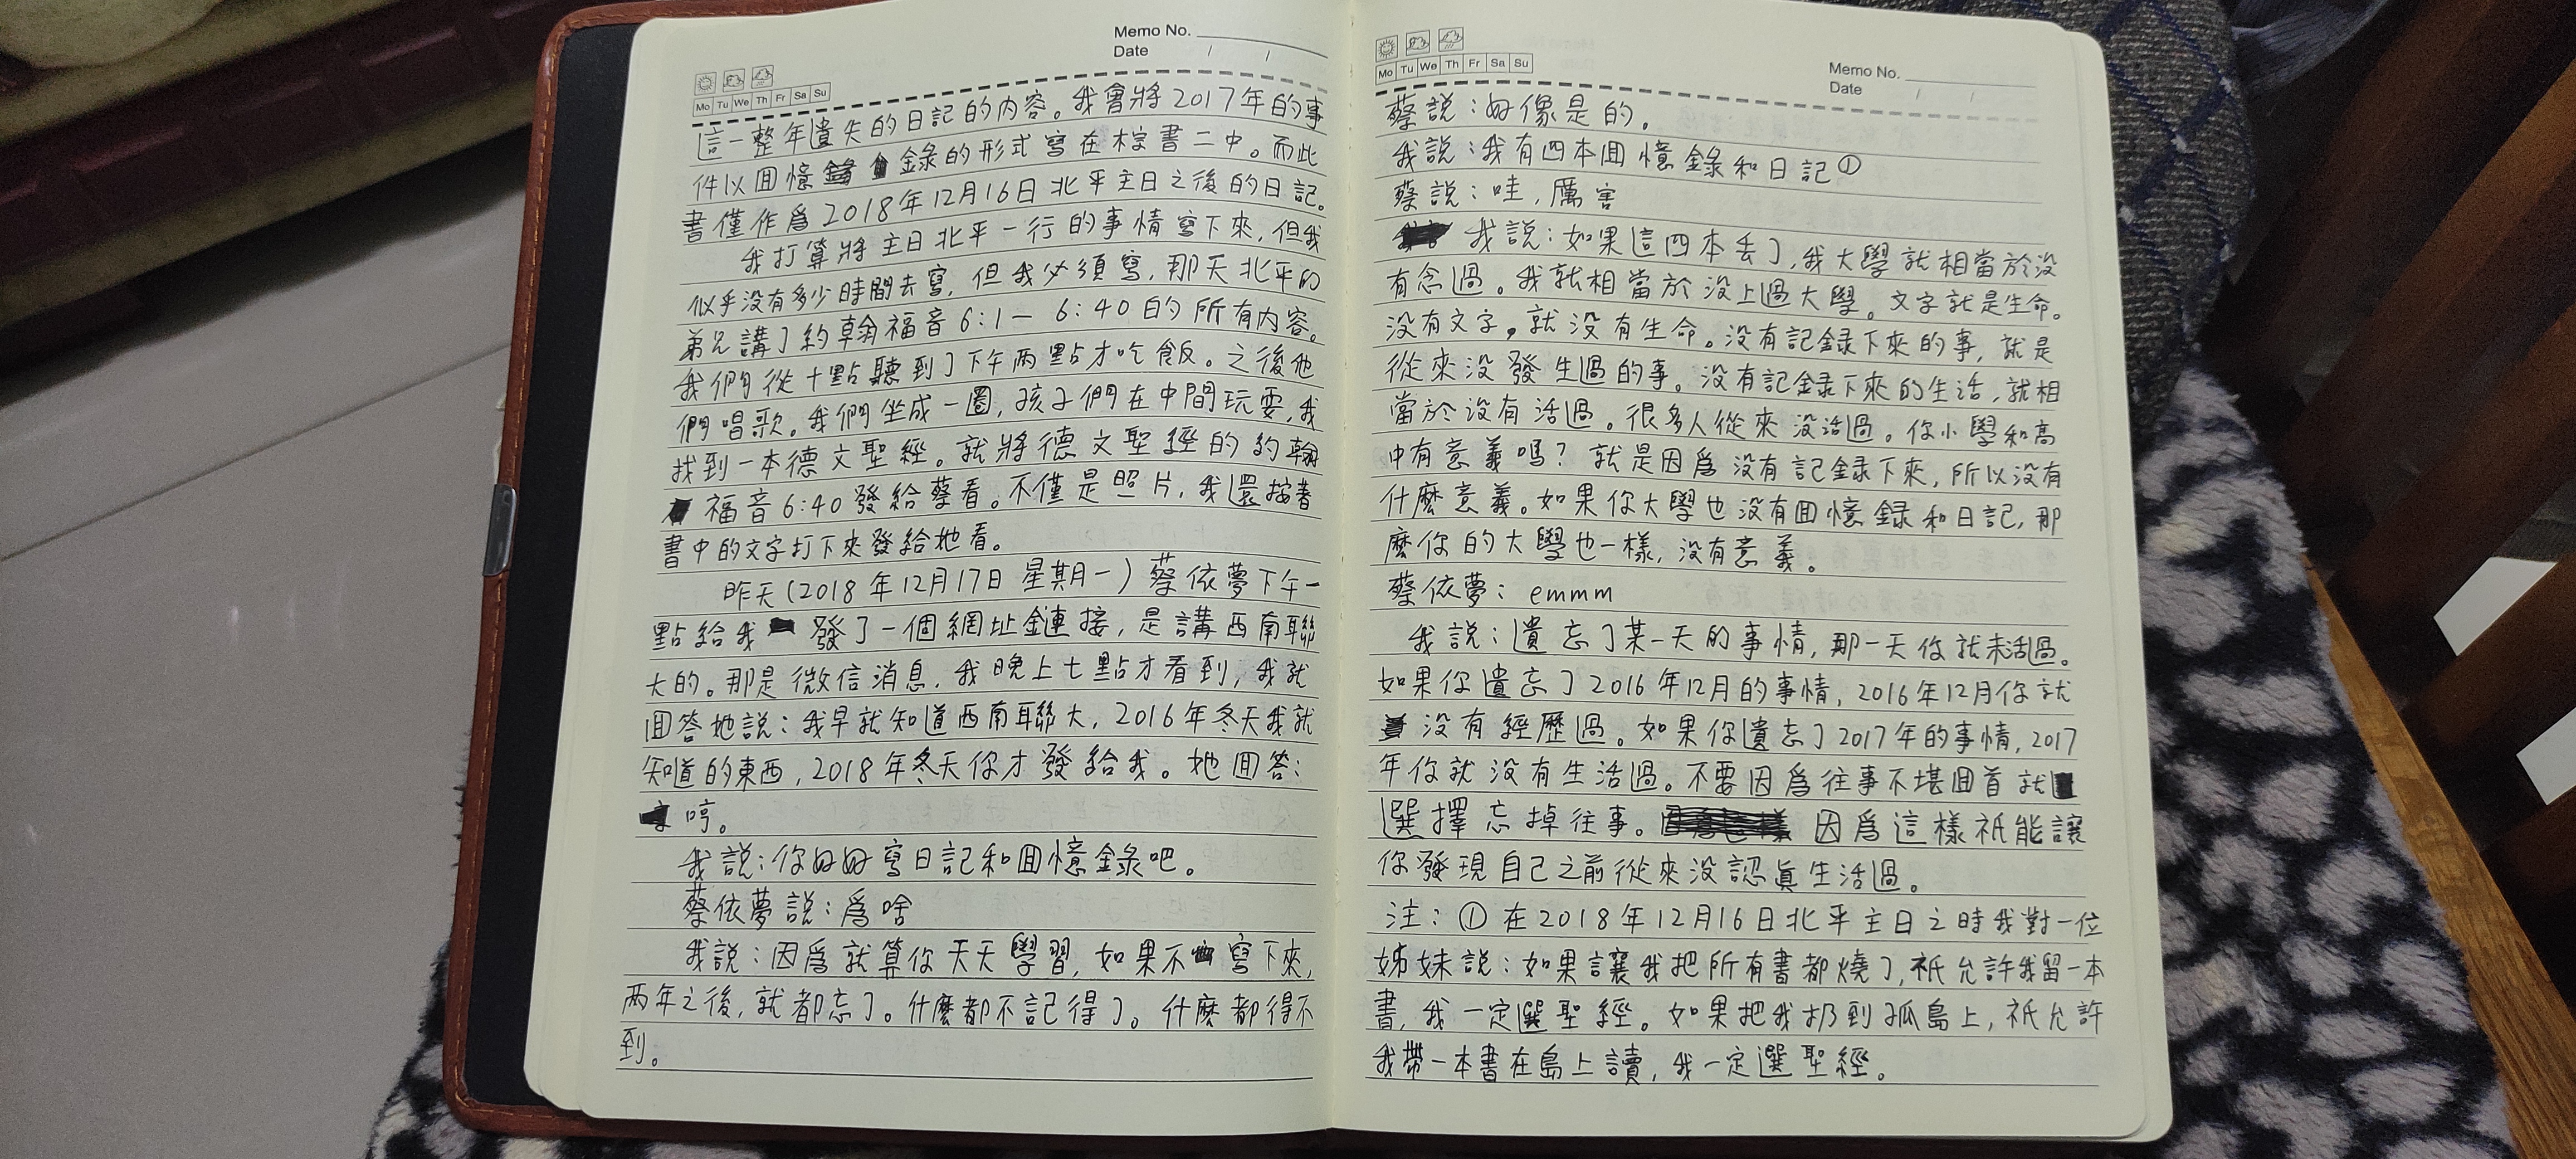 Memo No.
Date / /
Mo Tu We Th Fr Sa Su
這一整年遺失的日記的内容。我會將2017年的事
件以回憶錄的形式寫在棕書二中。而此
書僅作爲2018年12月16日北平主日之後的日記。
我打算將主日北平一行的事情寫下來,但我
似乎没有多少時間去寫,但我必須寫,那天北平的
弟兄講了約翰福音6:1—6:40的所有内容。
我們從十點聽到了下午两點才吃飯。之後他
們唱歌。我們坐成一圈,孩子們在中間玩耍,我
找到一本德文聖經。就將德文聖經的約翰
福音6:40發給蔡看。不僅是照片,我還按著
書中的文字打下來發給她看。
昨天(2018年12月17日星期一)蔡依夢下午一
點給我發了一個網址鏈接,是講西南聯
大的。那是微信消息,我晚上七點才看到,我就
回答她説:我早就知道西南聯大,2016年冬天我就
知道的東西,2018年冬天你才發給我。她回答:
哼。
我説:你好好寫日記和回憶錄吧。
蔡依夢説:爲啥
我説:因爲就算你天天學習,如果不寫下來,
两年之後,就都忘了。什麽都不記得了。什麽都得不
到。
Memo No.
Date / /
Mo Tu We Th Fr Sa Su
蔡説:好像是的。
我説:我有四本回憶錄和日記①
蔡説:哇,厲害
我説:如果這四本丢了,我大學就相當於没
有念過。我就相當於没上過大學。文字就是生命。
没有文字,就没有生命。没有記録下來的事,就是
從來没發生過的事。没有記録下來的生活,就相
當於没有活過。很多人從來没活過。你小學和高
中有意義嗎?就是因爲没有記録下來,所以没有
什麽意義。如果你大學也没有回憶録和日記,那
麽你的大學也一樣,没有意義。
蔡依夢:emmm
我説:遺忘了某一天的事情,那一天你就未活過。
如果你遺忘了2016年12月的事情,2016年12月你就
没有經歷過。如果你遺忘了2017年的事情,2017
年你就没有生活過。不要因爲往事不堪回首就
選擇忘掉往事。因爲這樣祇能讓
你發現自己之前從來没認眞生活過。
注:①在2018年12月16日北平主日之時我對一位
姊妹説:如果讓我把所有書都燒了,祇允許我留一本
書,我一定選聖經。如果把我扔到孤島上,祇允許
我帶一本書在島上讀,我一定選聖經。